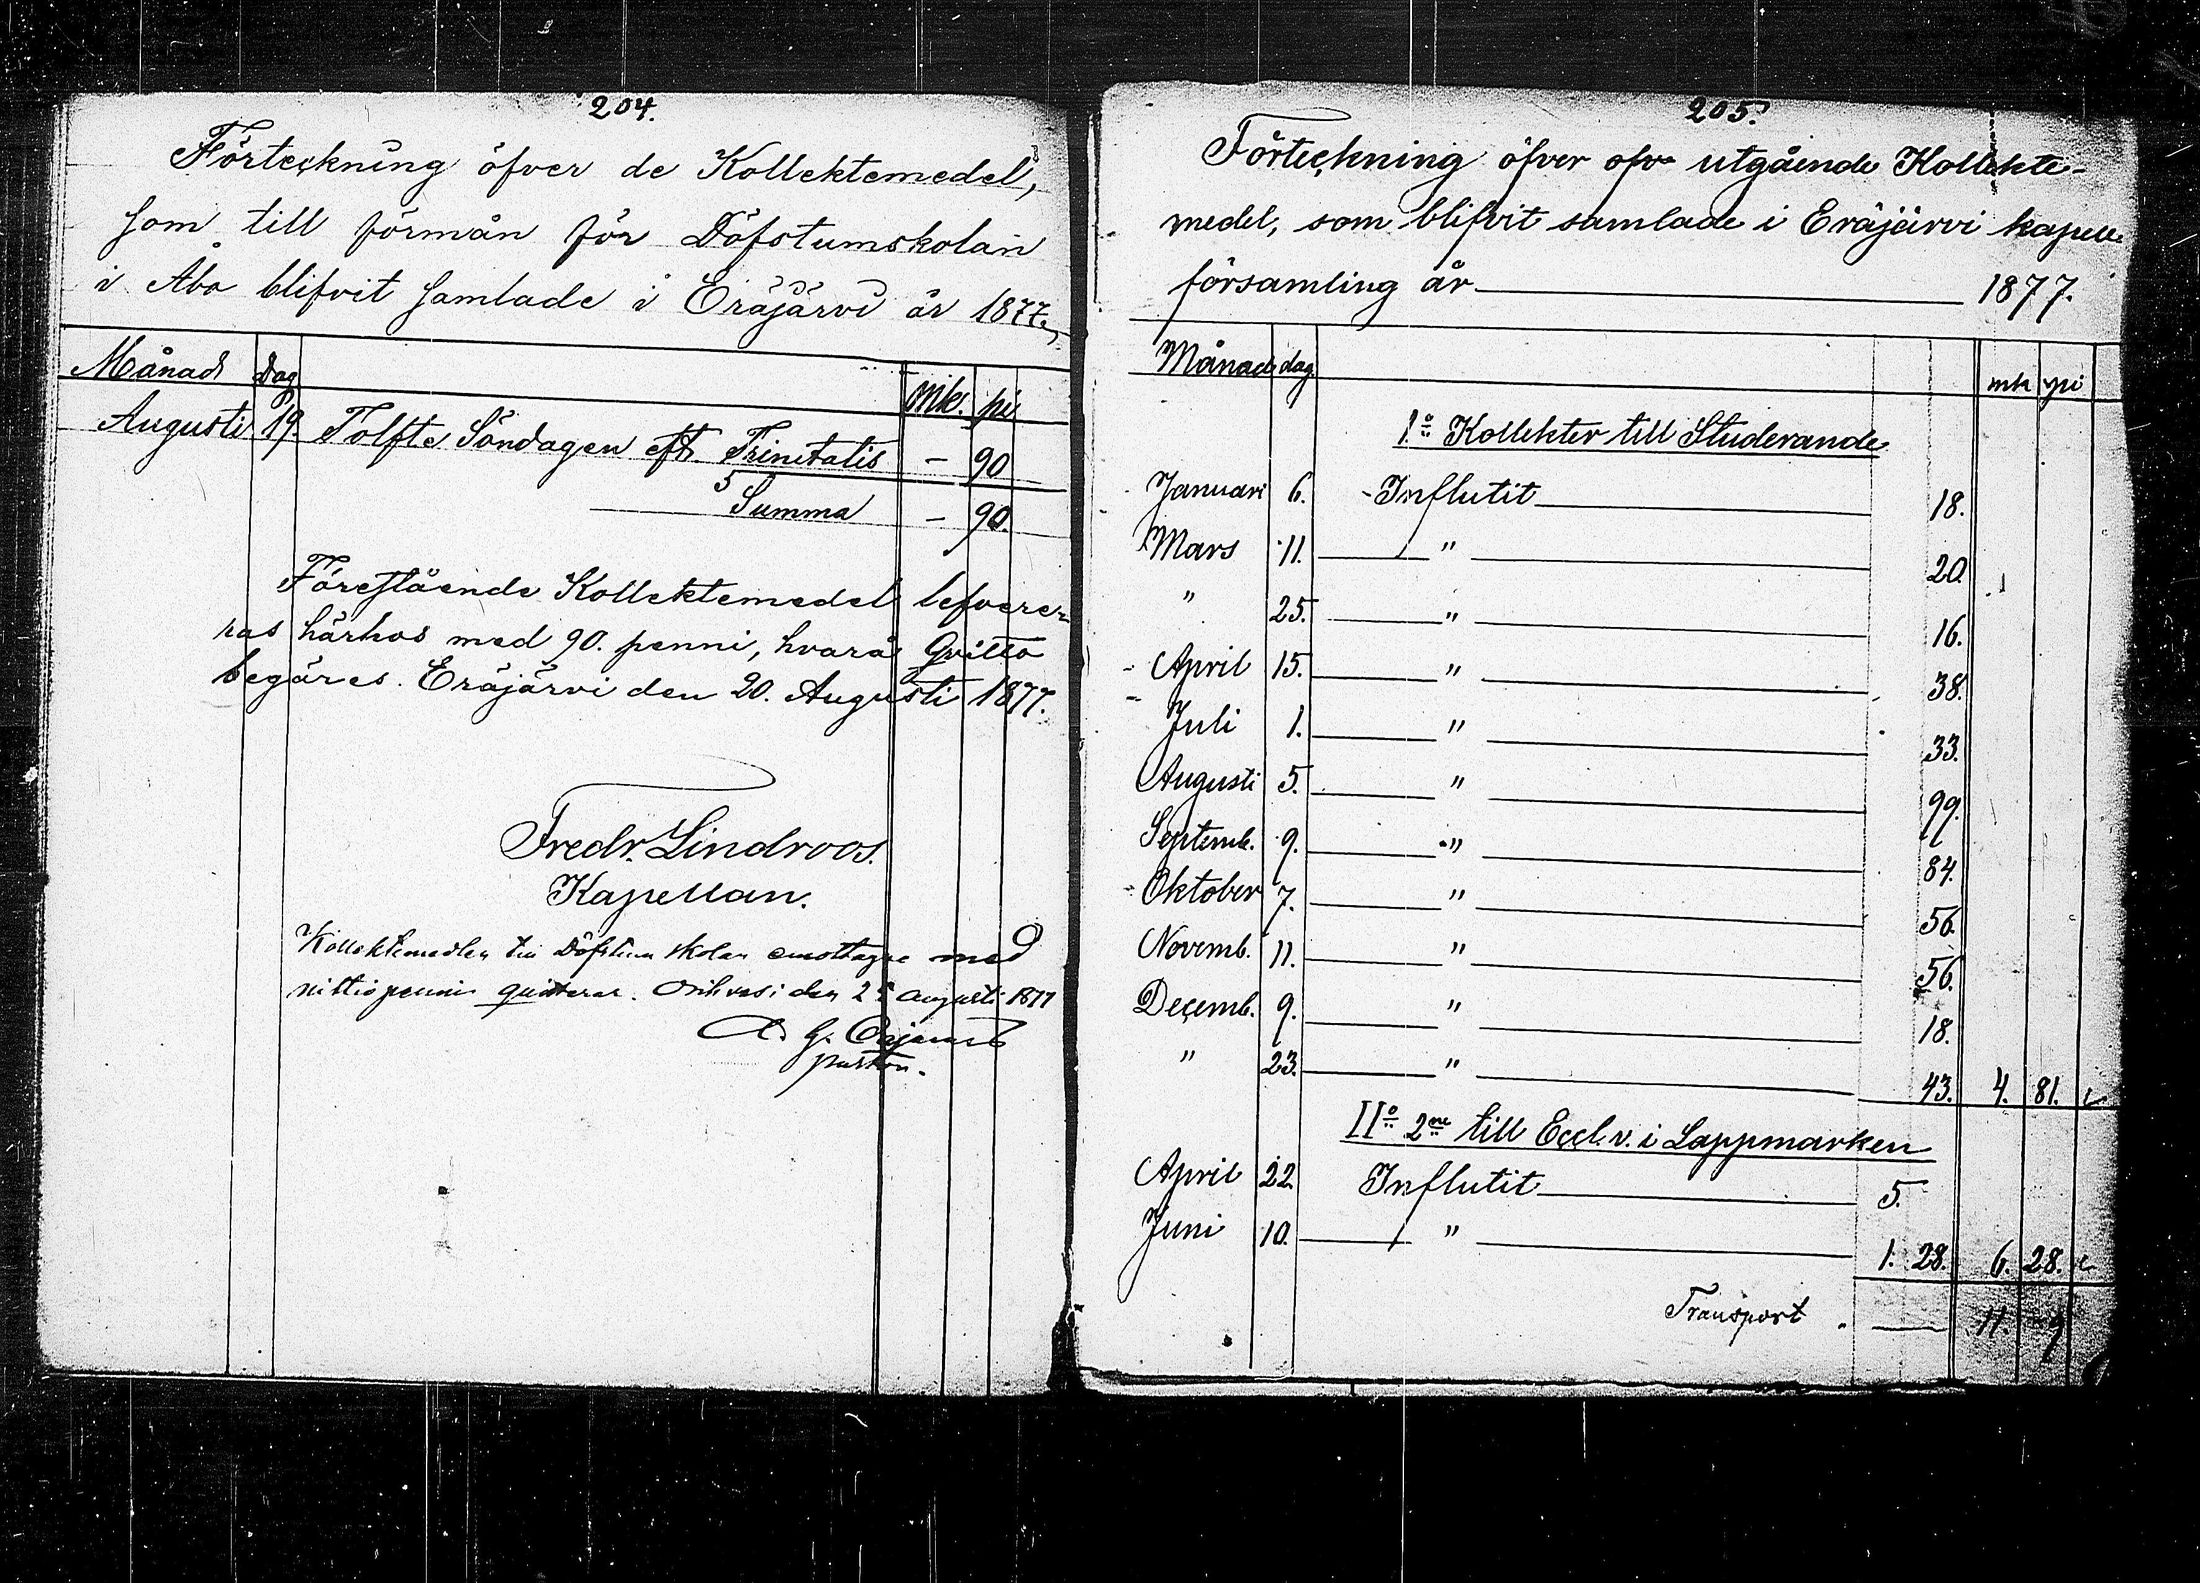 204.
Förteckning öfver de Kollektemedel,
som till förmån för Döfstumskolan
i Åbo blifvit samlade i Eräjärvi år 1877.
Månad Dag Mk. pi
Augusti 19. Tolfte Söndagen eft. Trinitatis – 90
Summa – 90.
Förestående Kollektemedel lefvere-
ras härhos med 90. penni, hvarå Qvitto
begäres. Eräjärvi den 20. Augusti 1877.
Fredr. Lindroos.
Kapellan.
Kollektemedlen till Döfstum skolan emottagne med
nittio penni qvitteras. Orihvesi den 25 augusti 1877
A. G.
pastor.
205.
Förteckning öfver ofv utgående Kollekte-
medel, som blifvit samlade i Eräjärvi kapell
församling år 1877.
Månad dag. mk pi
1:o Kollekter till Studerande
Januari 6. Influtit 18.
Mars 11. " 20.
" 25. " 16.
April 15. " 38.
Juli 1. " 33.
Augusti 5. " 99.
Septemb. 9. " 84.
Oktober 7. " 56.
Novemb. 11. " 56.
Decemb. 9. " 18.
" 23. " 43. 4. 81.
II:o 2:ne till Eccl. v. i Lappmarken
April 22. Influtit 5.
Juni 10. " 1. 28. 6. 28.
Transport 11. 9